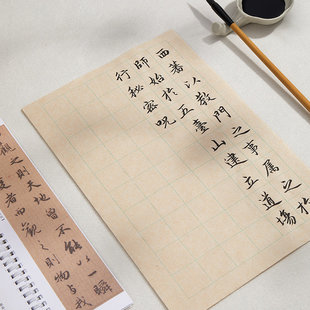 西蕃以教門之事属之於
師始於五臺山建立道場
行秘密呪
觀之則天地曾不能以一瞬
者而觀之則物与我